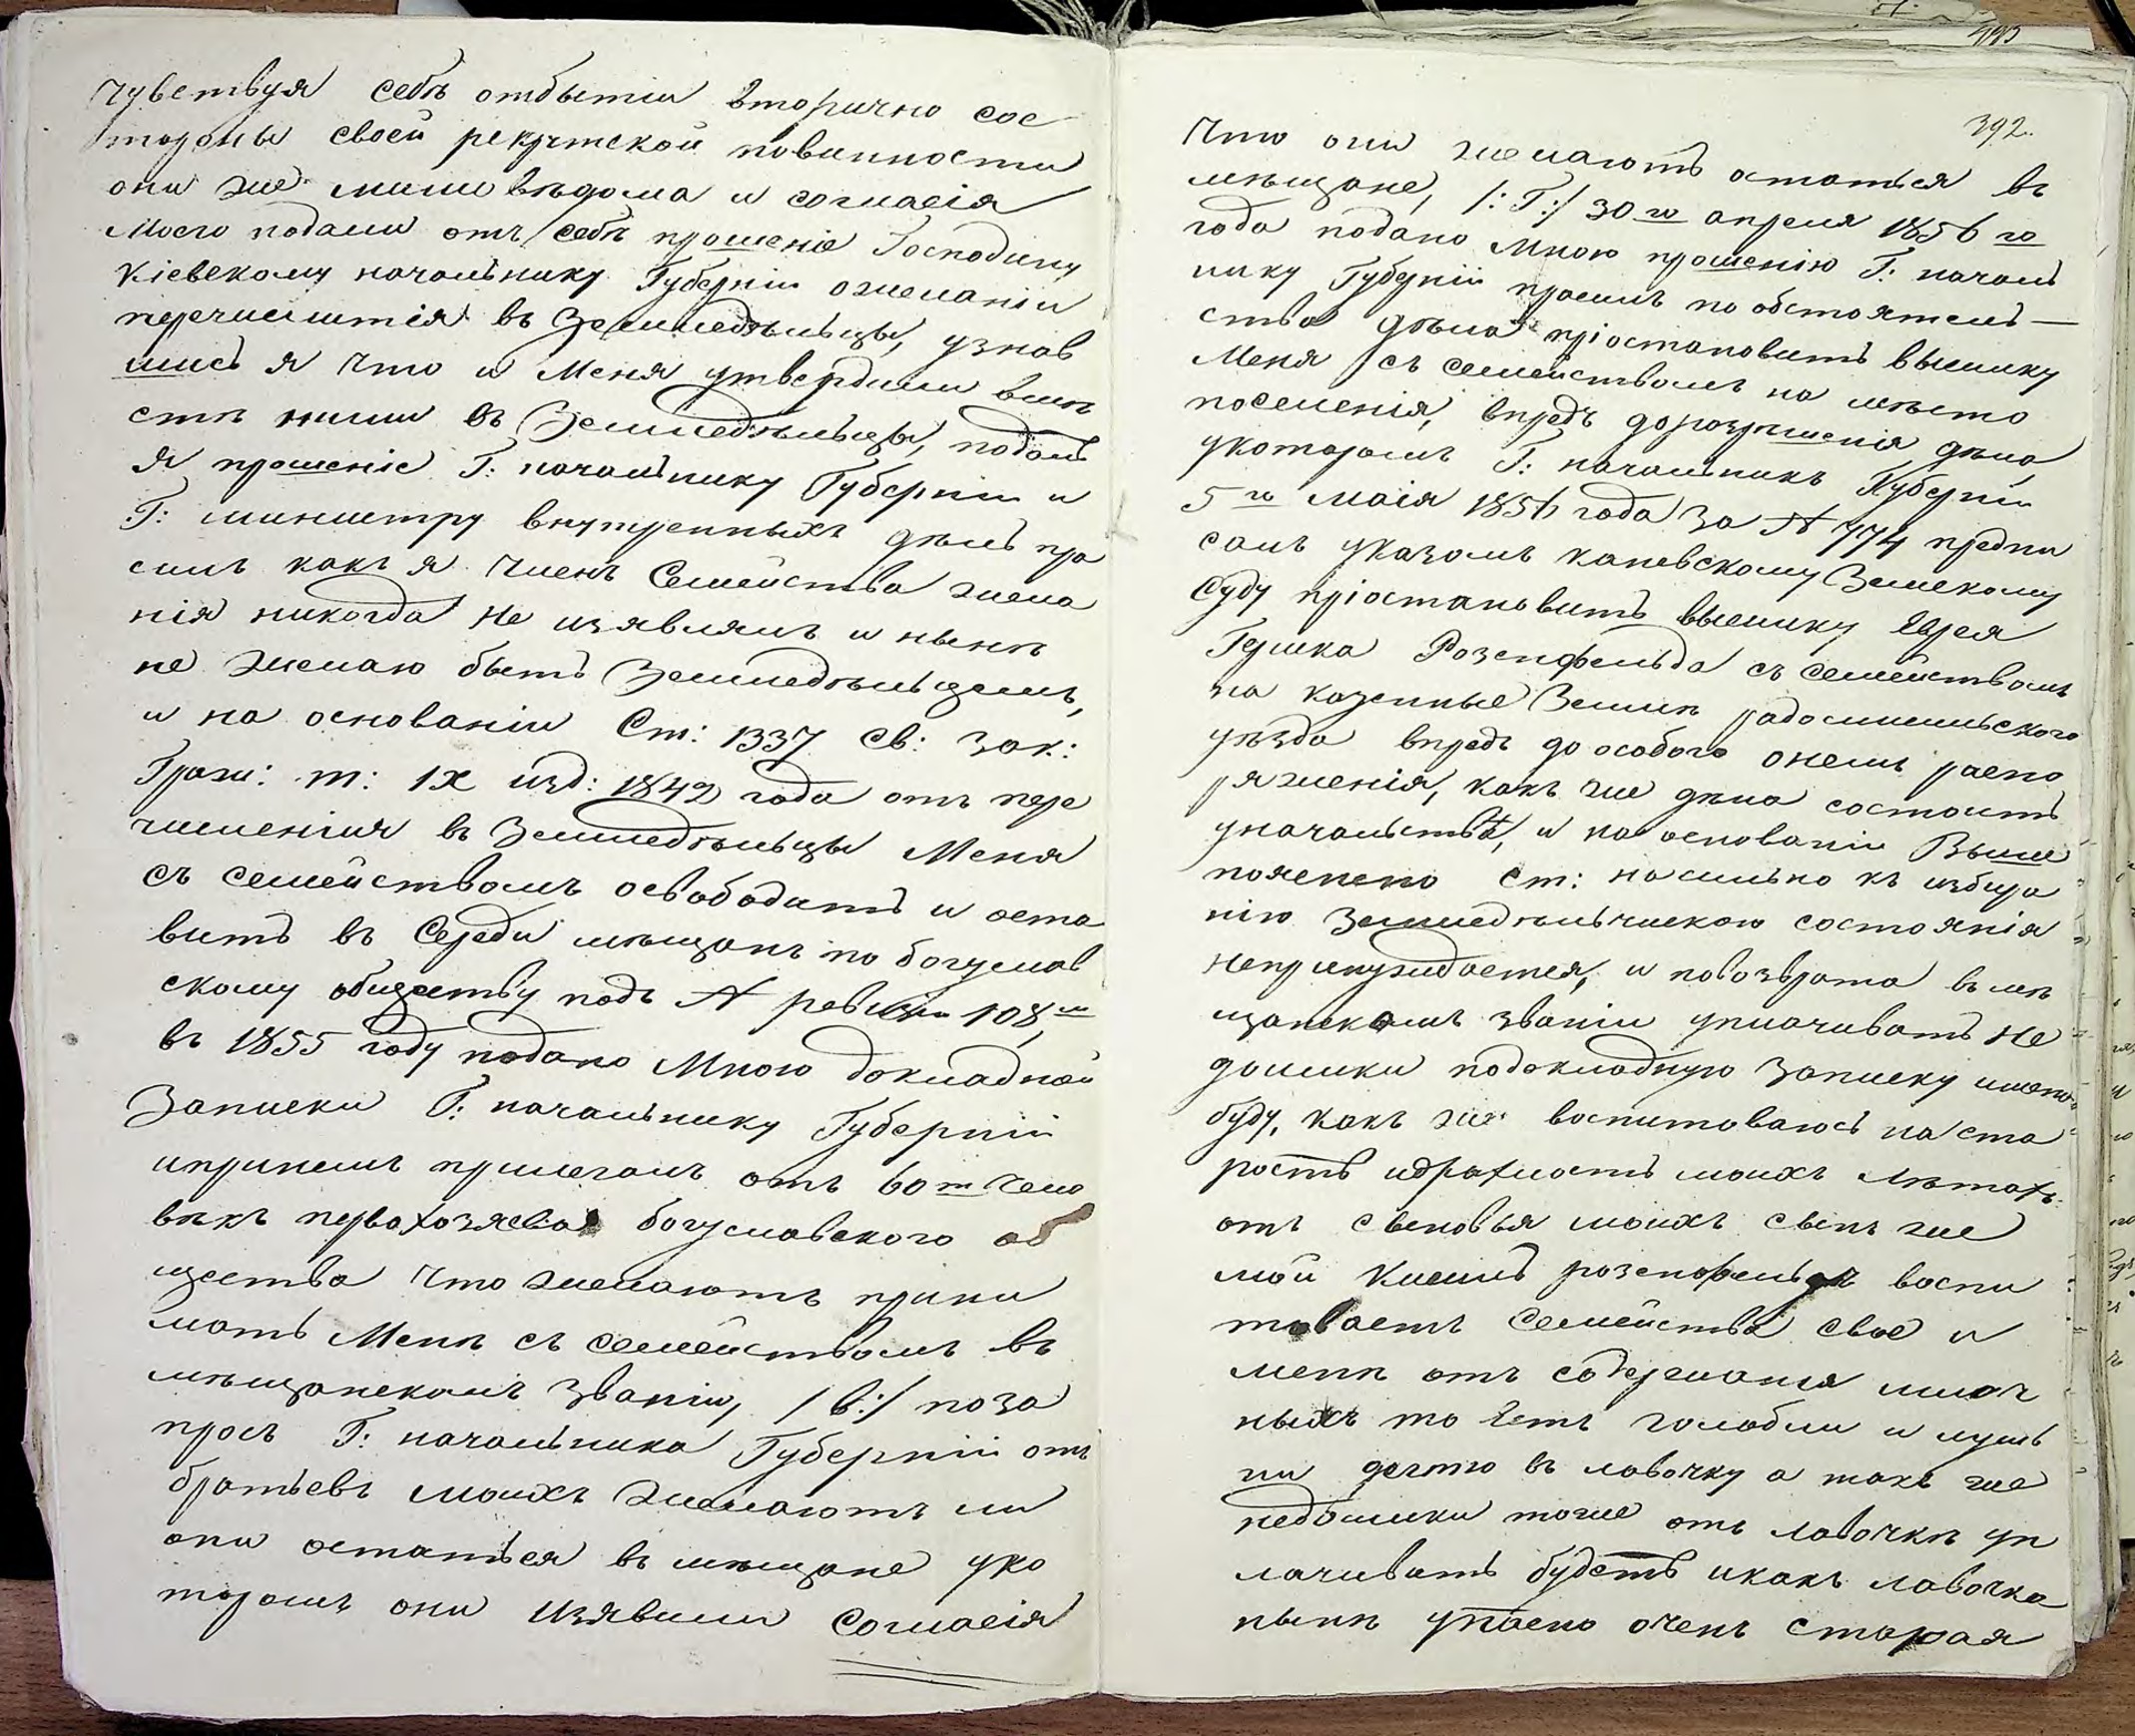 чувствуя себѣ отбытіи вторично сос
тороны своей рекрутской повинности
они же мими вѣдома и согласія
Моего подали отъ себѣ прошеніе Господину
Кіевскому начальнику Губерніи ожеланіи
перечислитія въ Земледѣльцы, узнав
шись я что и Меня утвердили вмѣ
стѣ ними въ Земледѣльцы, подалъ
я прошеніе Г: начальнику Губерніи и
Г: министру внутренныхъ дѣлъ про
силъ какъ я членъ Семейства жела
нія никогда не изявлялъ и нынѣ
не желаю быть Земледѣльцемъ,
и на основаніи Ст: 1337 Св: Зак:
Граж: т: IX изд: 1842 года отъ пере
численія въ Земледѣльцы Меня
съ семействомъ освободить и оста
вить въ Среди мѣщанъ по богуслав
скому обществу подъ № ревизіи 108,
въ 1855 году подано Мною докладной
Записки Г: начальнику Губерніи
ипринемъ прилегалъ отъ 60 т чело
вѣкъ первохозяева богуславского об
щества что желаютъ прини
мать Менѣ съ семействомъ въ
мѣщанскомъ званіи, /:в:/ поза
просъ Г: начальника Губерніи отъ
братьевъ моихъ желаютъ ли
они остатьея въ мѣщане уко
торомъ они изявили согласія
392.
что они желаютъ остаться въ
мѣщане, /:Г:/ 30 го апреля 1856 го
года подано Мною прошенію Г: началь
нику Губерніи просилъ по обстоятель—
ства дѣла пріостановить высылку
Меня съ семействомъ на мѣсто
поселенія, впредъ доразрѣшенія дѣла
укоторомъ Г: начальникъ Губерніи
5 го Маія 1856 года за № 774 предпи
салъ указомъ каневскому Земскому
Суду пріостановить высылку Еврея
Гершка Розенфельда съ семействомъ
на казенные Земли радомысльского
уѣзда впредъ до особого онемъ распо
ряженія, какъ же дѣло состоитъ
уначальства, и на основаніи Выше
пояснено ст: насильно къ избира
нію Земледѣльческою состоянія
непринуждается, и повозврата въ мѣ
щанскомъ званіи уплачивать не
доимки подокладную записку имено
буду, какъ же воспитоваюсь на ста
рость идряхлость моихъ лѣтахъ
отъ сыновья моихъ сынъ же
мой Кисиль розенфельдъ воспи
товаетъ Семейства свое и
менѣ отъ содержанія
ныхъ то естъ голобли и
ни дегтю въ лавочку а такъ же
недоимки тоже отъ лавочкѣ уп
лачивать будетъ икакъ лавочка
нынѣ очень старая